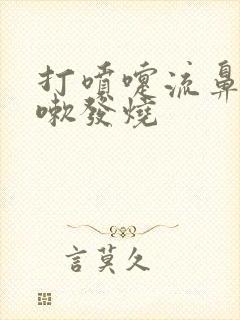 打噴嚏流鼻
嗽發燒
言莫久